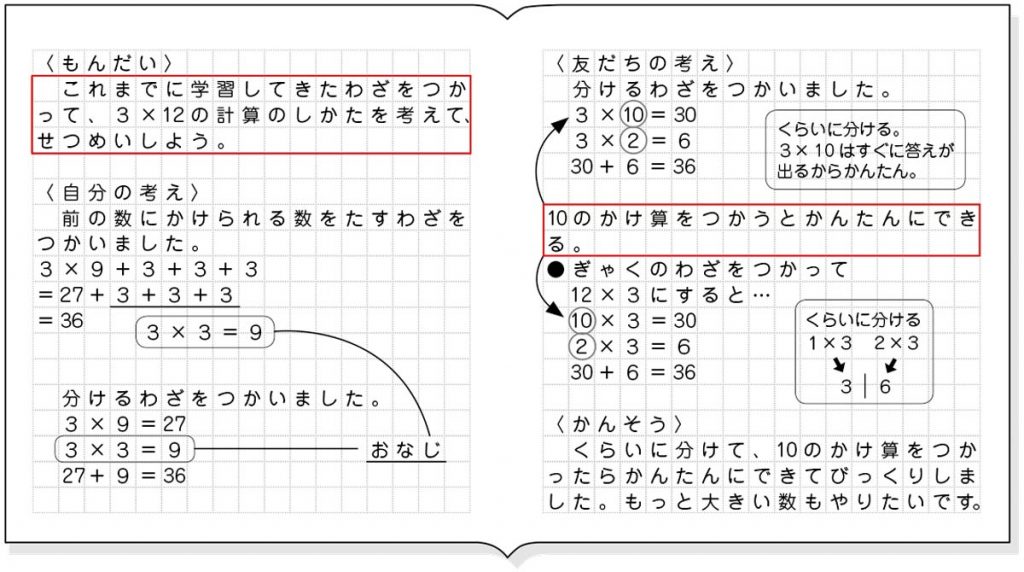 〈もんだい〉
これまでに学習してきたわざをつか
って、3×12の計算のしかたを考えて、
せつめいしよう。
〈自分の考え〉
前の数にかけられる数をたすわざを
つかいました。
3×9+3+3+3
=27+3+3+3
=36
3×3=9
分けるわざをつかいました。
3×9=27
3×3=9
おなじ
27+9=36
〈友だちの考え〉
分けるわざをつかいました。
3×10=30
3×2=6
30+6=36
くらいに分ける。
3×10はすぐに答えが
出るからかんたん。
10のかけ算をつかうとかんたんにでき
る。
●ぎゃくのわざをつかって
12×3にすると…
10×3=30
2×3=6
30+6=36
くらいに分ける
1×3 2×3
3|6
〈かんそう〉
くらいに分けて、10のかけ算をつか
ったらかんたんにできてびっくりしま
した。もっと大きい数もやりたいです。